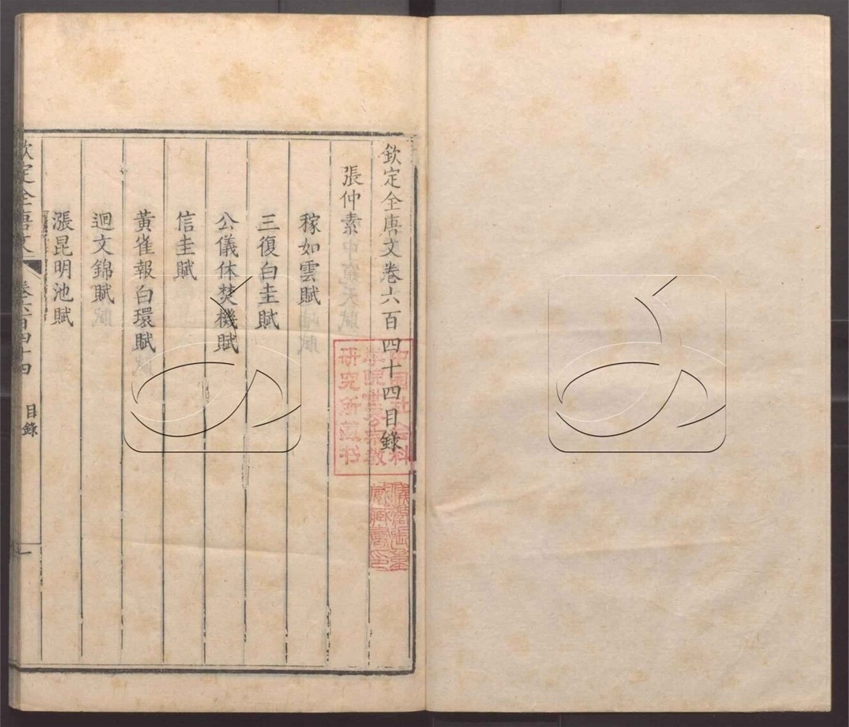 欽定全唐文卷六百四十四目錄
張仲素
稼如雲賦
三復白圭賦
公儀休焚機賦
信圭賦
黃雀報白環賦
迴文錦賦
漲昆明池賦
欽定全唐文
卷六百四十四
目錄
一